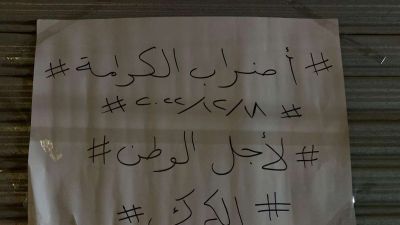 # أضراب الكرامة #
# ٢٠٢٢/١٢/١٨ #
# لأجل الوطن #
# الكرك #